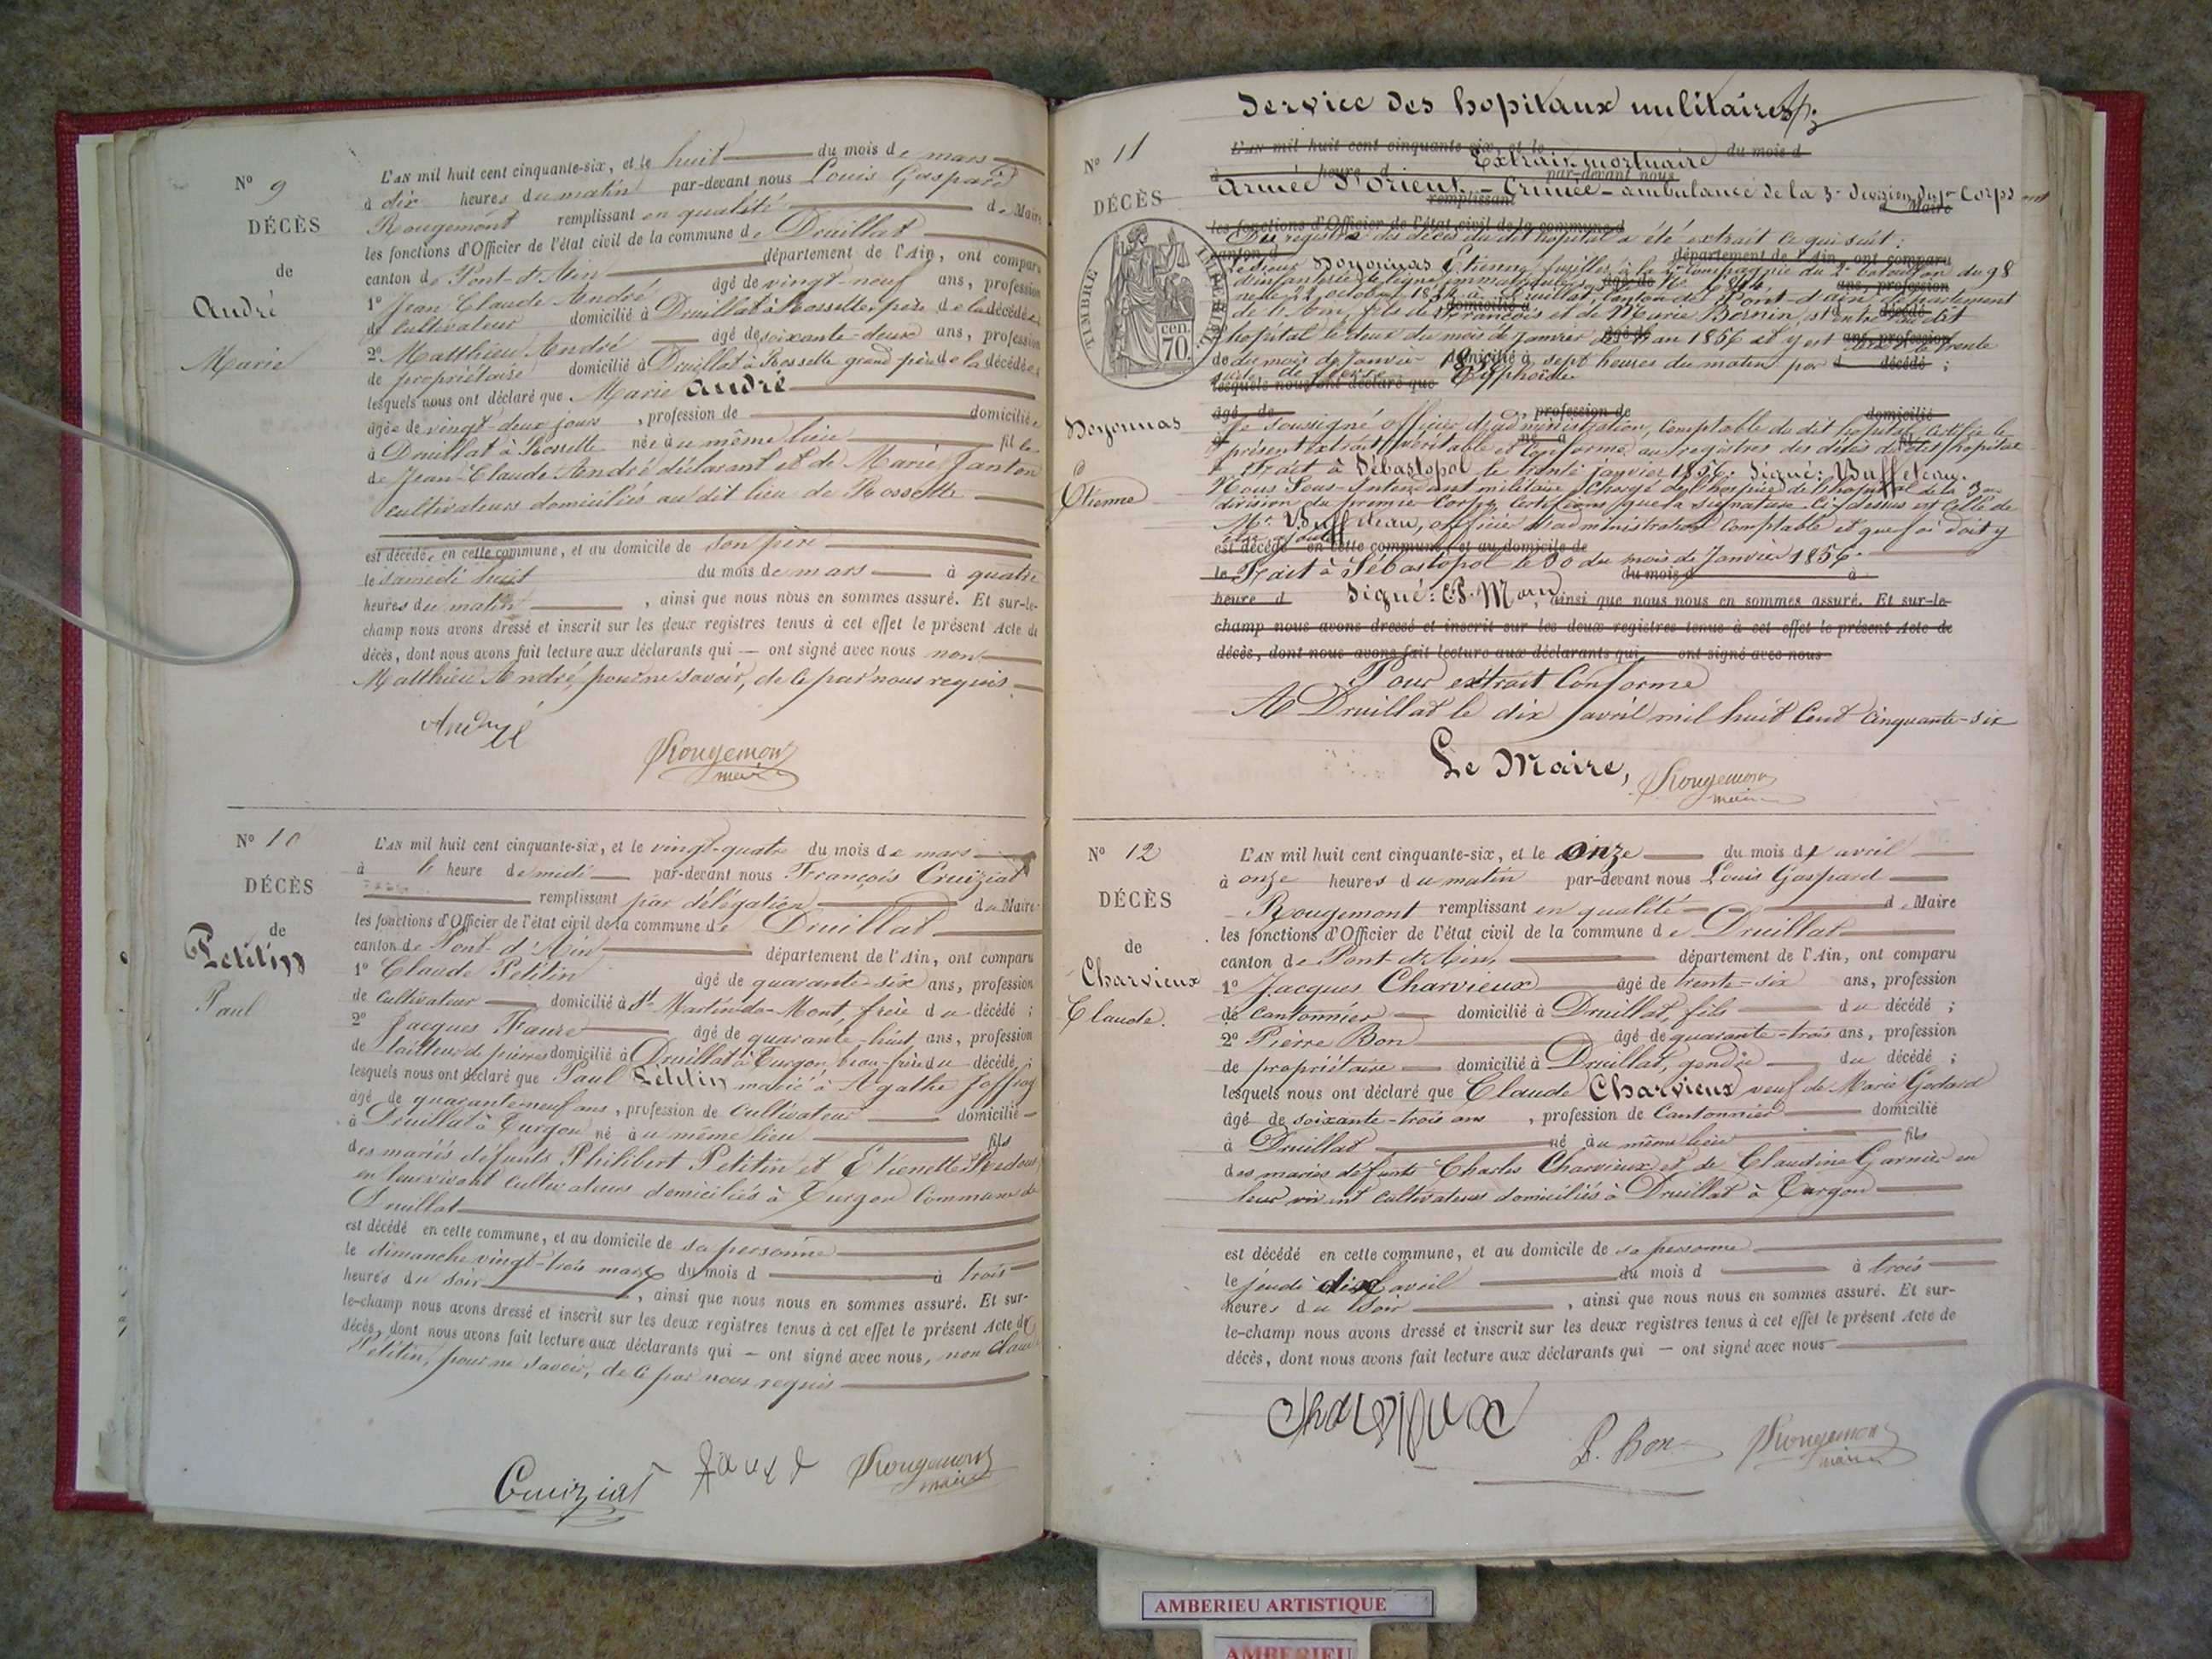 N° 9
DÉCÈS
de
André
Marie
L'AN mil huit cent cinquante-six, et le huit du mois de mars
à dix heures du matin par-devant nous Louis Gaspard
Rougemont remplissant en qualité de Maire
les fonctions d'Officier de l'état civil de la commune de Druillat
canton de Pont-d'Ain département de l'Ain, ont comparu
1° Jean Claude André âgé de vingt-neuf ans, profession
de cultivateur domicilié à Druillat à Rossette, père de la décédée
2° Matthieu André âgé de soixante-deux ans, profession
de propriétaire domicilié à Druillat à Rossette grand père de la décédée
lesquels nous ont déclaré que Marie André
âgée de vingt-deux jours, profession de domiciliée
à Druillat à Rossette née au même lieu fille
de Jean-Claude André déclarant et de Marie Janton
cultivateurs domiciliés au dit lieu de Rossette
est décédée en cette commune, et au domicile de son père
le samedi huit du mois de mars à quatre
heures du matin, ainsi que nous nous en sommes assuré. Et sur-le-
champ nous avons dressé et inscrit sur les deux registres tenus à cet effet le présent Acte de
décès, dont nous avons fait lecture aux déclarants qui — ont signé avec nous non
Matthieu André, pour ne savoir, de ce par nous requis.
André
Rougemont
maire
N° 10
DÉCÈS
de
Petitin
Paul
L'AN mil huit cent cinquante-six, et le vingt-quatre du mois de mars
à heure de midi par-devant nous François Cruiziat
remplissant par délégation du Maire
les fonctions d'Officier de l'état civil de la commune de Druillat
canton de Pont-d'Ain département de l'Ain, ont comparu
1° Claude Petitin âgé de quarante-six ans, profession
de cultivateur domicilié à St Martin-du-Mont, frère du décédé ;
2° Jacques Faure âgé de quarante-huit ans, profession
de tailleur de pierres domicilié à Druillat à Turgon, beau-frère du décédé ;
lesquels nous ont déclaré que Paul Petitin marié à Agathe
âgé de quarante neuf ans, profession de cultivateur domicilié
à Druillat à Turgon né au même lieu fils
des mariés défunts Philibert Petitin et Etienette
en leur vivant cultivateurs domiciliés à Turgon commune de
Druillat
est décédé en cette commune, et au domicile de sa personne
le dimanche vingt-trois mars du mois d à trois
heures du soir, ainsi que nous nous en sommes assuré. Et sur-
le-champ nous avons dressé et inscrit sur les deux registres tenus à cet effet le présent Acte de
décès, dont nous avons fait lecture aux déclarants qui — ont signé avec nous, non Claude
Petitin, pour ne savoir, de ce par nous requis
Cruiziat Faure Rougemont
maire
Service des hopitaux militaires
N° 11
DÉCÈS
TIMBRE IMPERIAL
70 cen.
Doyonnas
Etienne
L'AN mil huit cent cinquante-six, et le du mois d
Extrait mortuaire
à heure d par-devant nous
Armée d'orient - Crimée - ambulance de la 3e division du 1er Corps
remplissant Maire
les fonctions d'Officier de l'état civil de la commune d
Du registre des décès du dit hopital a été extrait ce qui suit :
canton d département de l'Ain, ont comparu
Le sieur Doyonnas Etienne, fusilier à la 2e compagnie du 2e bataillon du 98
d'infanterie de ligne, immatriculé N° âgé de ans, profession
né le octobre à Druillat, canton de Pont-d'ain département
domicilié à décédé
de l'Ain, fils de François et de Marie Bernin, est entré au dit
hôpital le deux du mois de Janvier de l'an 1856 et y est trente
âgé de ans, profession
du mois de Janvier 1856 à sept heures du matin par
de domicilié à d décédé ;
suite de fièvre Typhoïde.
lesquels nous ont déclaré que
âgé de profession de domicilié
Je soussigné officier d'administration, comptable du dit hopital, certifie le
présent extrait véritable et conforme aux registres des décès du dit hôpital
Fait à Sébastopol le trente Janvier 1856. Signé : Buffeteau.
Nous Sous-Intendant militaire chargé de l'hôpital de la 3me
division du premier Corps, certifions que la signature ci-dessus est celle de
Mr. Buffeteau, officier d'administration comptable et que foi doit y
est décédé en cette commune, et au domicile de
le Fait à Sébastopol le 30 du mois de Janvier 1856
du mois d à
heure d Signé : , ainsi que nous nous en sommes assuré. Et sur-le-
champ nous avons dressé et inscrit sur les deux registres tenus à cet effet le présent Acte de
décès, dont nous avons fait lecture aux déclarants qui ont signé avec nous
Pour extrait Conforme
A Druillat le dix avril mil huit cent cinquante-six
Le Maire, Rougemont
maire
N° 12
DÉCÈS
de
Charvieux
Claude.
L'AN mil huit cent cinquante-six, et le onze du mois d'avril
à onze heures du matin par-devant nous Louis Gaspard
Rougemont remplissant en qualité de Maire
les fonctions d'Officier de l'état civil de la commune de Druillat
canton de Pont-d'Ain, département de l'Ain, ont comparu
1° Jacques Charvieux âgé de trente-six ans, profession
de cantonnier domicilié à Druillat, fils du décédé ;
2° Pierre Bon âgé de quarante-trois ans, profession
de propriétaire domicilié à Druillat, gendre du décédé ;
lesquels nous ont déclaré que Claude Charvieux veuf de Marie Godard
âgé de soixante-trois ans, profession de cantonnier domicilié
à Druillat né au même lieu fils
des mariés défunts Charles Charvieux et de Claudine Garnier en
leur vivant cultivateurs domiciliés à Druillat à Turgon
est décédé en cette commune, et au domicile de sa personne
le jeudi dix avril du mois d à trois
heures du soir, ainsi que nous nous en sommes assuré. Et sur-
le-champ nous avons dressé et inscrit sur les deux registres tenus à cet effet le présent Acte de
décès, dont nous avons fait lecture aux déclarants qui — ont signé avec nous
Charvieux P. Bon Rougemont
maire
AMBERIEU ARTISTIQUE
AMBERIEU